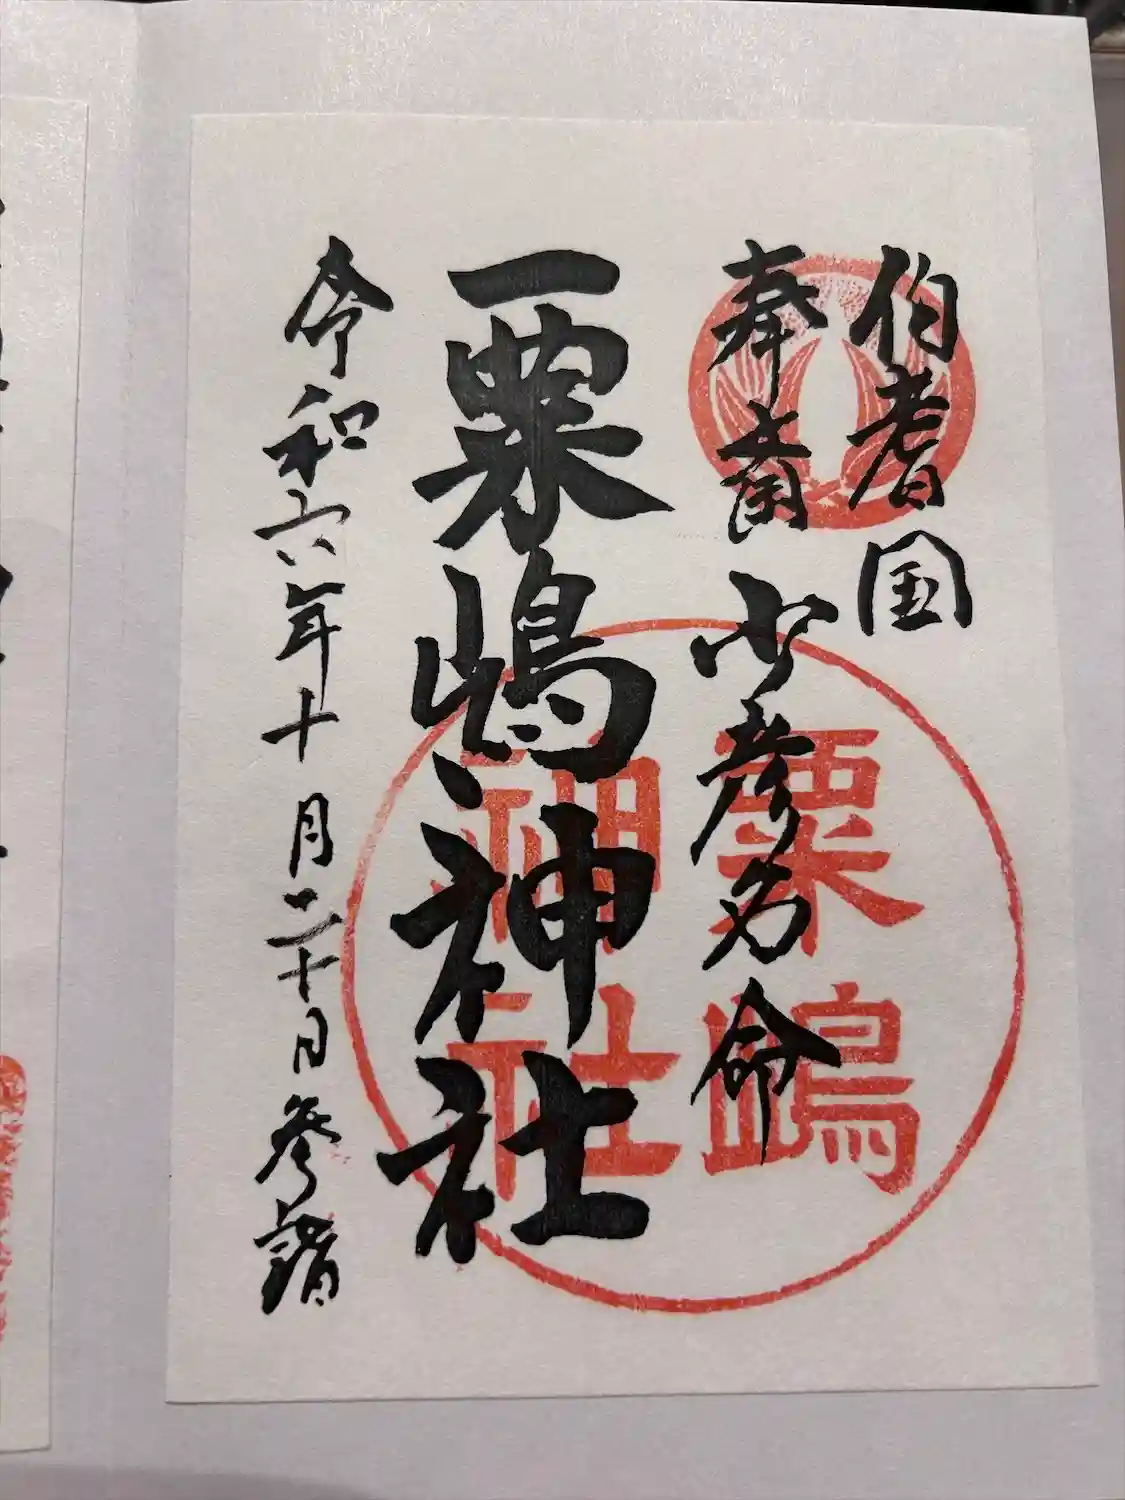 伯耆国
奉斎 少彦名命
粟嶋神社
令和六年十月二十日参詣
粟嶋
神社